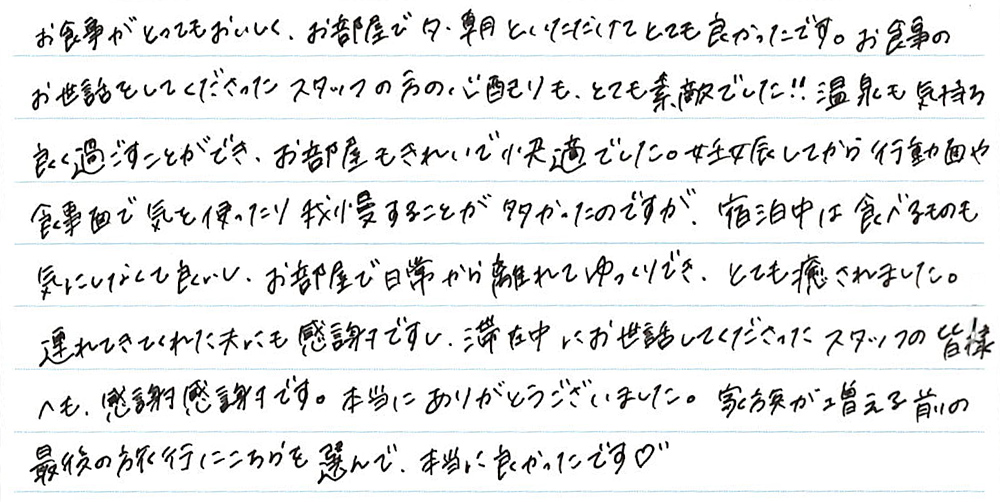 お食事がとってもおいしく、お部屋で夕・朝といただけてとても良かったです。お食事の
お世話をしてくださったスタッフの方の心配りも、とても素敵でした!!温泉も気持ち
良く過ごすことができ、お部屋もきれいで快適でした。妊娠してから行動面や
食事面で気を使ったり我慢することが多かったのですが、宿泊中は食べるものも
気にしなくて良いし、お部屋で日常から離れてゆっくりでき、とても癒されました。
連れてきてくれた夫にも感謝ですし、滞在中にお世話してくださったスタッフの皆様
へも、感謝感謝です。本当にありがとうございました。家族が増える前の
最後の旅行にこちらを選んで、本当に良かったです♡